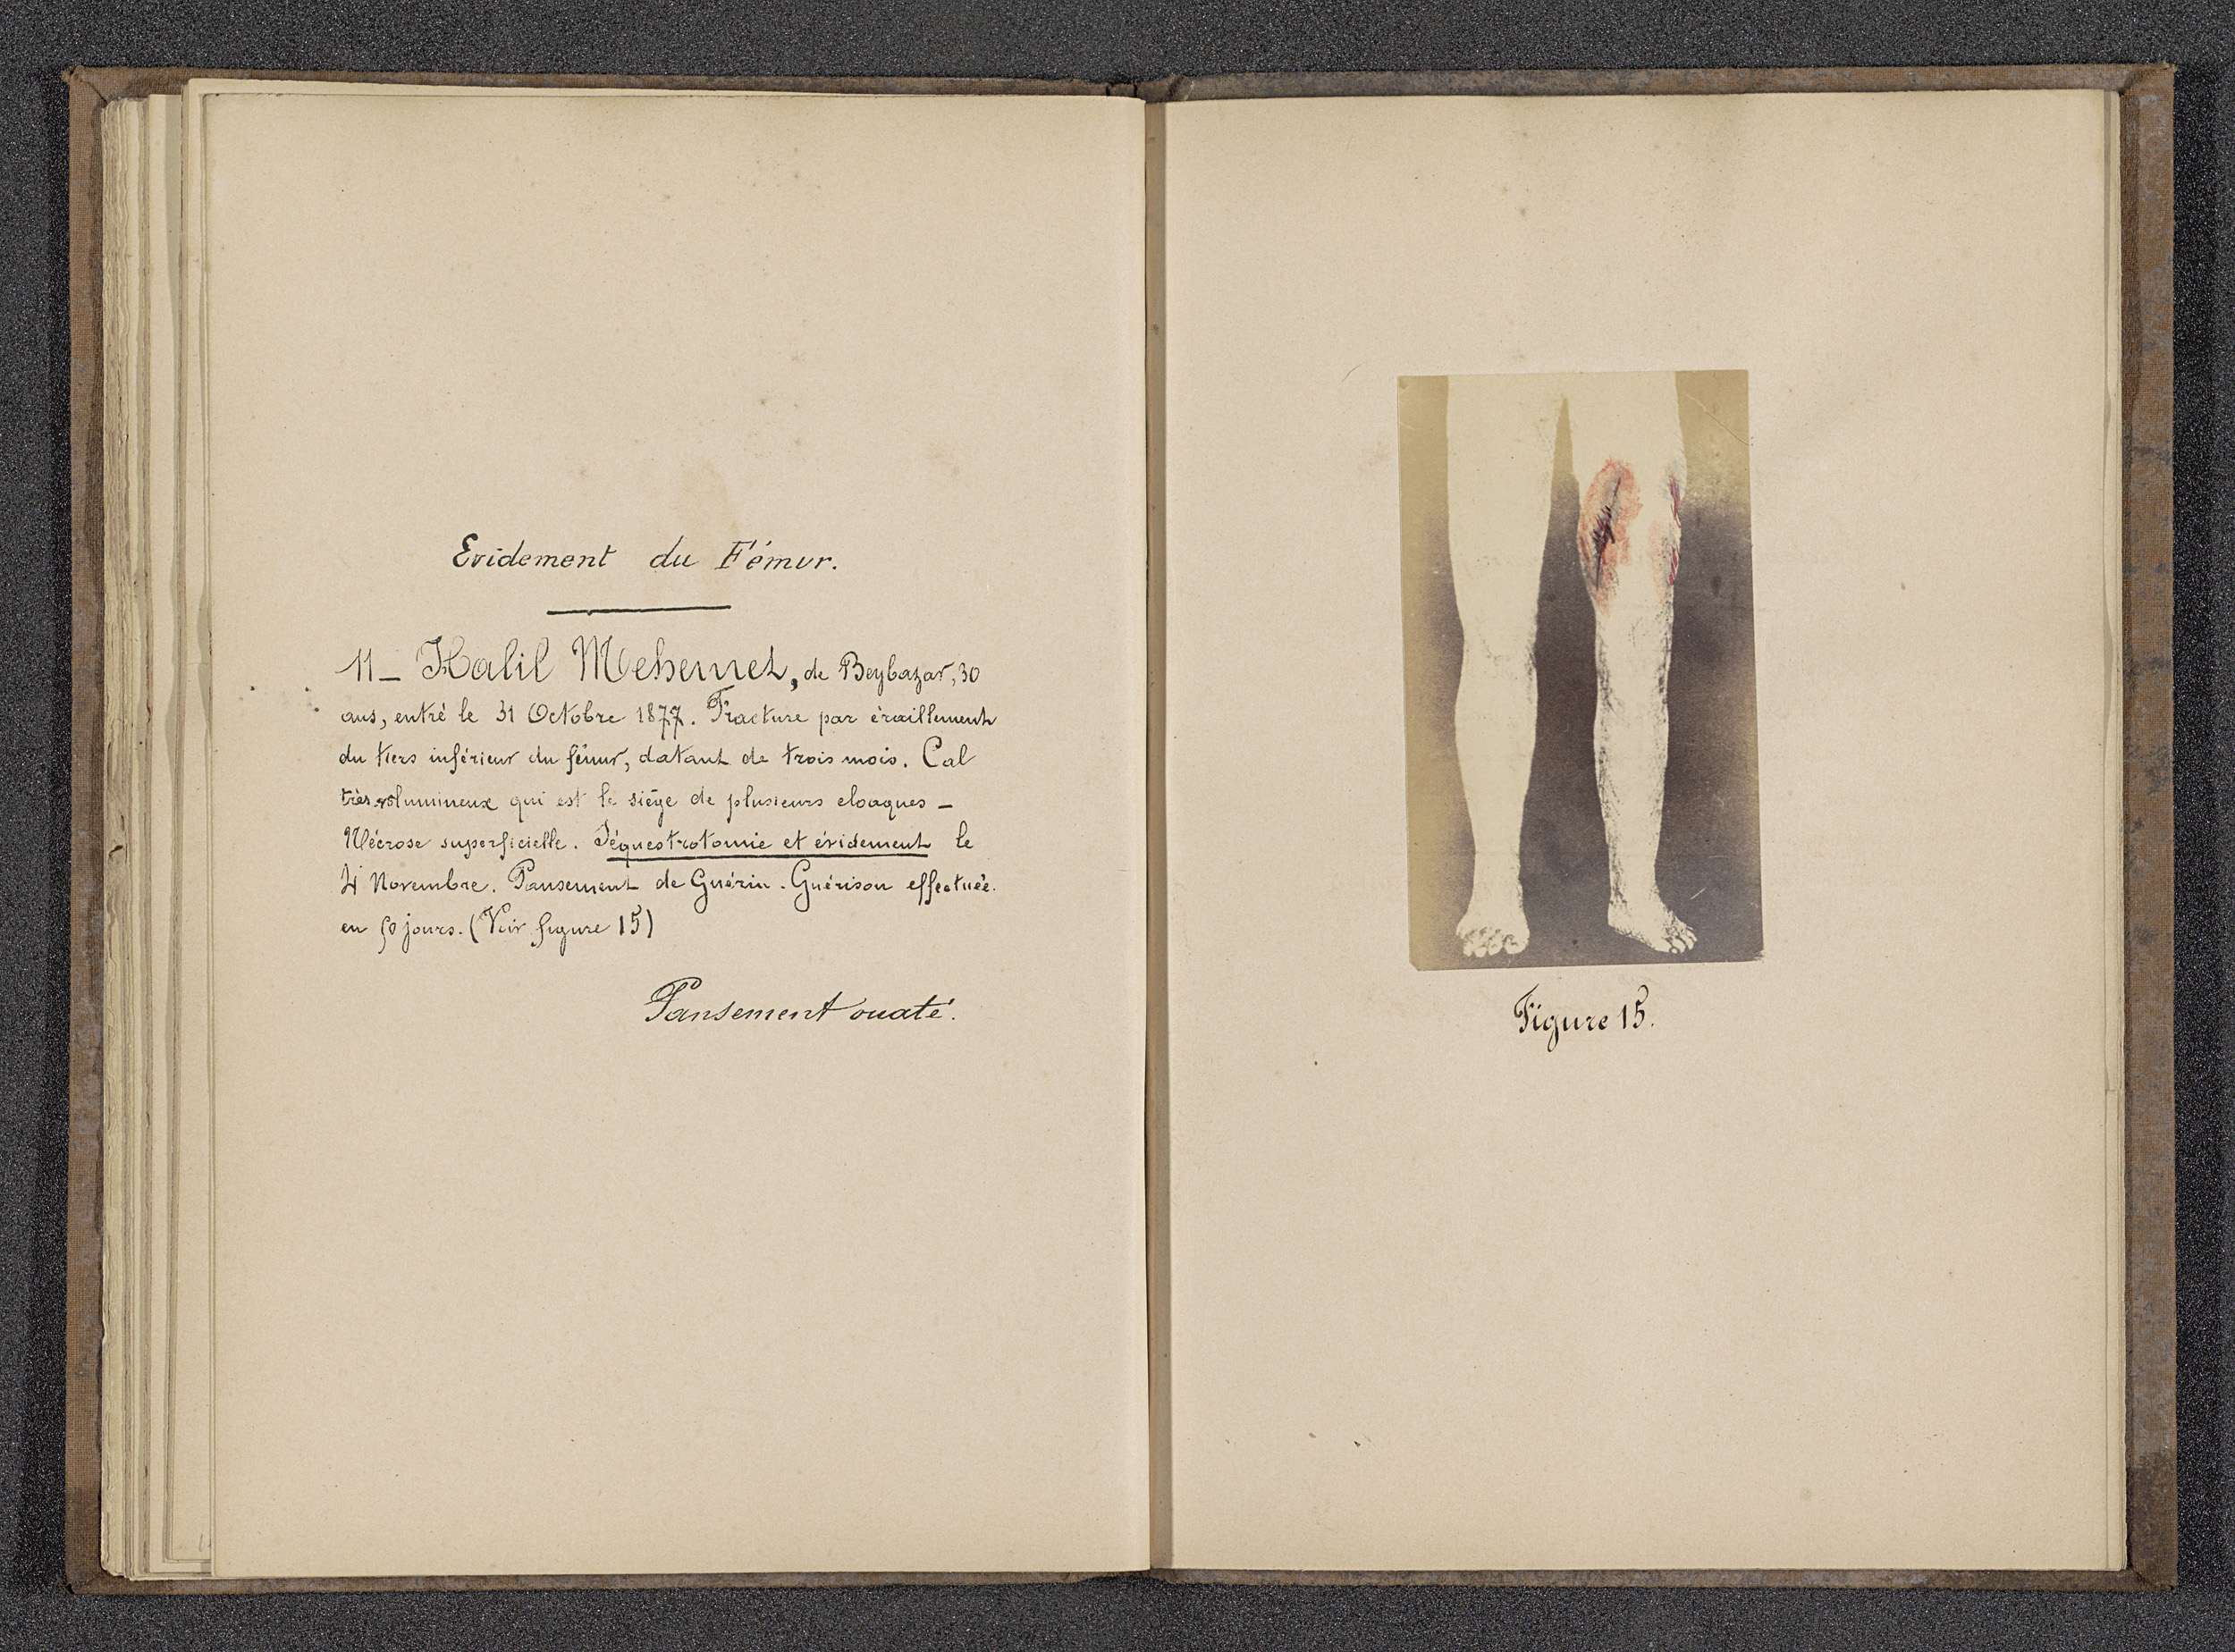 Evidement du Fémur.
11_ Halil Mehemet, de Beybazar, 30
ans, entré le 31 Octobre 1877. Fracture par éraillement
du tiers inférieur du fémur, datant de trois mois. Cal
très volumineux qui est le siège de plusieurs cloaques _
Nécrose superficielle. Séquestrotomie et évidement le
4 Novembre. Pansement de Guérin. Guérison effectuée.
en 50 jours. (Voir figure 15)
Pansement ouaté.
Figure 15.